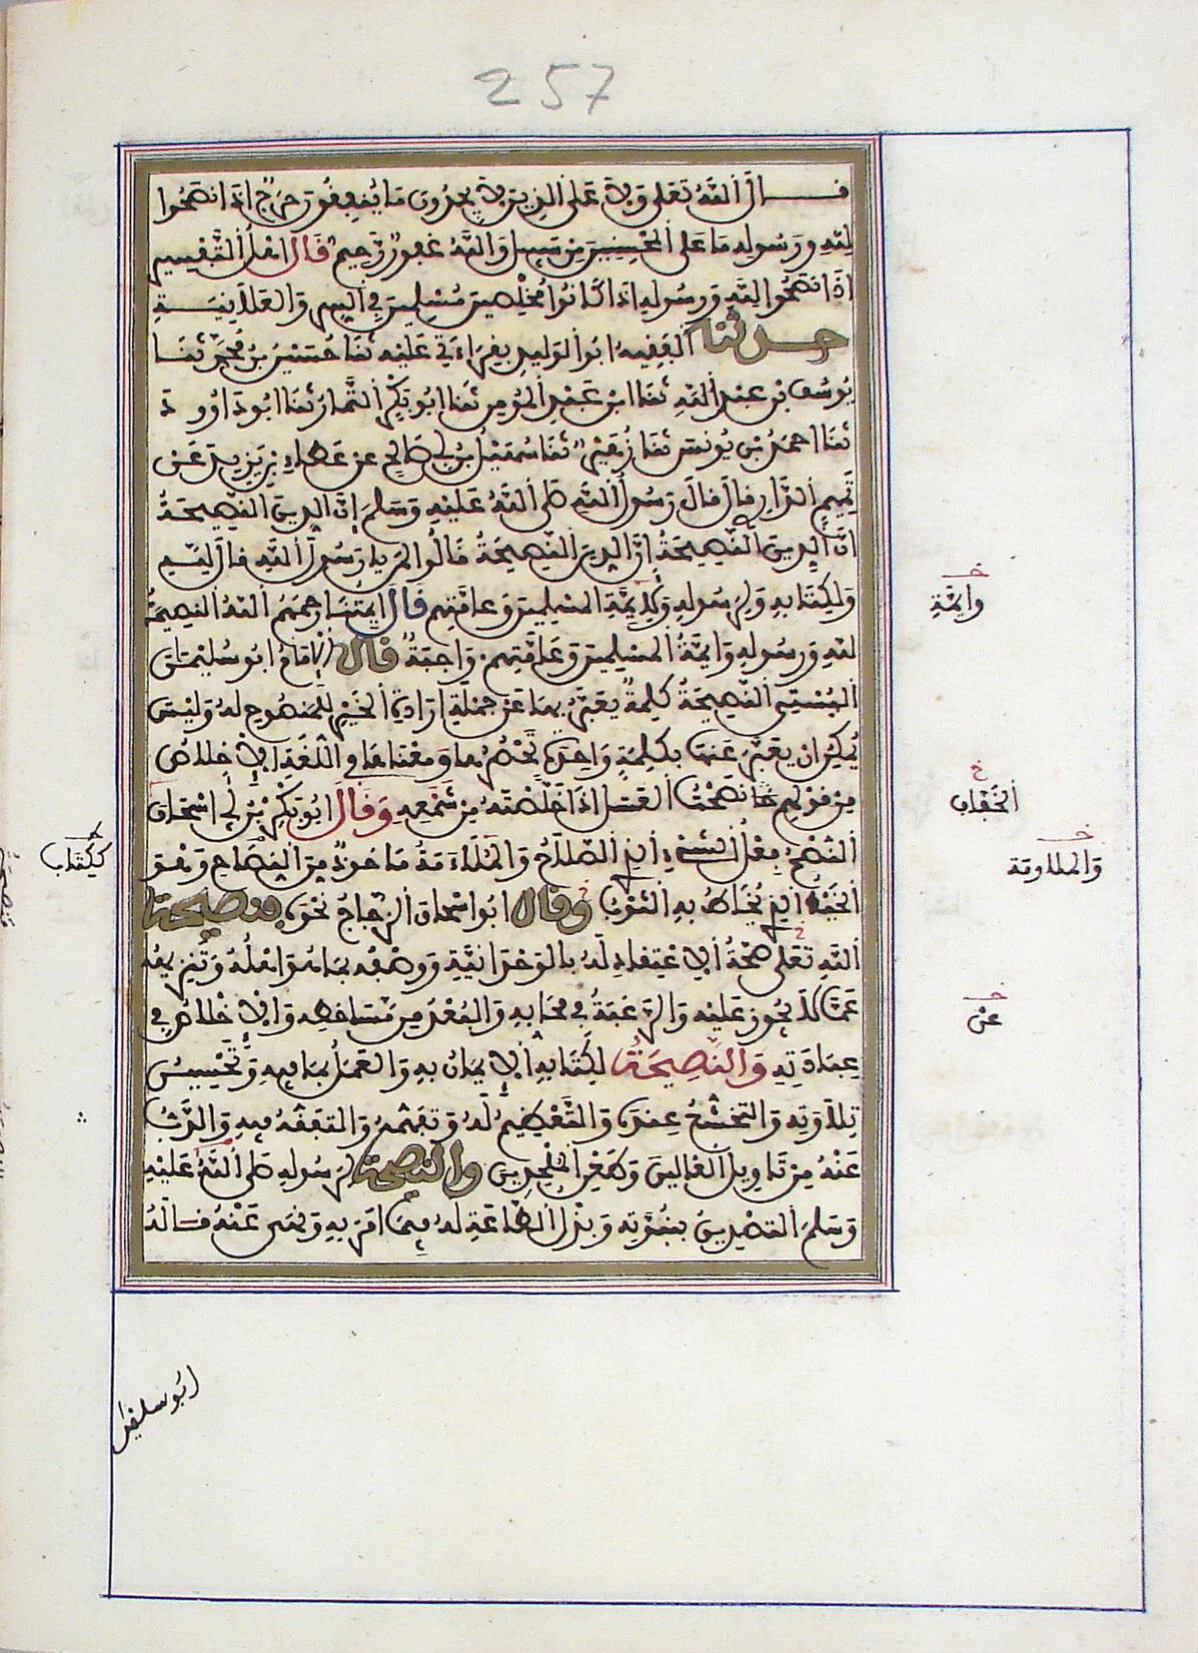 257
قـال الله تعلى ولا على الذين لا يجدون ما ينفقون حرج اذا نصحوا
لله ورسوله ما على المحسنين من سبيل والله غفور رحيم قال اهل التفسير
اذا نصحوا لله ورسوله اذا كانوا مخلصين مسلمين في السر والعلانيـة
حـدثنا الفقيه ابو الوليد بقراءتي عليه ثنا حسين بن محمد ثنـا
يوسف بن عبد الله ثنا ابن عبد المومن ثنا ابو بكر التمار ثنا ابو داوود
ثنا احمد بن يونس ثنا زهير ثنا سهيل بن ابي صالح عن عطاء بن يزيد عن
تميم الداري قال قال رسول الله صلى الله عليه وسلم إن الدين النصيحة
ان الدين النصيحة إن الدين النصيحة قالوا لمن يا رسول الله قال لله
ولكتابه ولرسوله ولأيمة المسلمين وعامتهم قال ايمتنا رحمهم الله النصيحة
لله ورسوله وايمة المسلمين وعامتهم واجبة قال الامام ابو سليمان
البستي النصيحة كلمة يعبر بها عن جملة ارادة الخير للمنصوح له وليس
يمكن ان يعبر عنها بكلمة واحدة تحصرها ومعناها في اللغة الاخلاص
من قولهم نصحت العسل اذا خلصته من شمعه وقال ابو بكر بن ابي اسحاق
النصح فعل الشيء الذي به الصلاح والملاءمة ماخوذ من النصاح وهو
الخيط الذي يخاط به الثوب وقال ابو اسحاق الزجاج نحوه فنصيحة
الله تعلى صحة الاعتقاد له بالوحدانية ووصفه بما هو اهله وتنزيهه
عما لا يجوز عليه والرغبة في محابه والبعد من مساخطه والاخلاص في
عبادته والنصيحة لكتابه الايمان به والعمل بما فيه وتحسين
تلاوته والتخشع عنده والتعظيم له وتفهمه والتفقه فيه والذب
عنه من تاويل الغالين وطعن الملحدين والنصيحة لرسوله صلى الله عليه
وسلم التصديق بنبوته وبذل الطاعة له فيما امر به ونهى عنه قاله
خ
وايمة
خ
خ
والملاومة
خ
عن
ابو سليمن